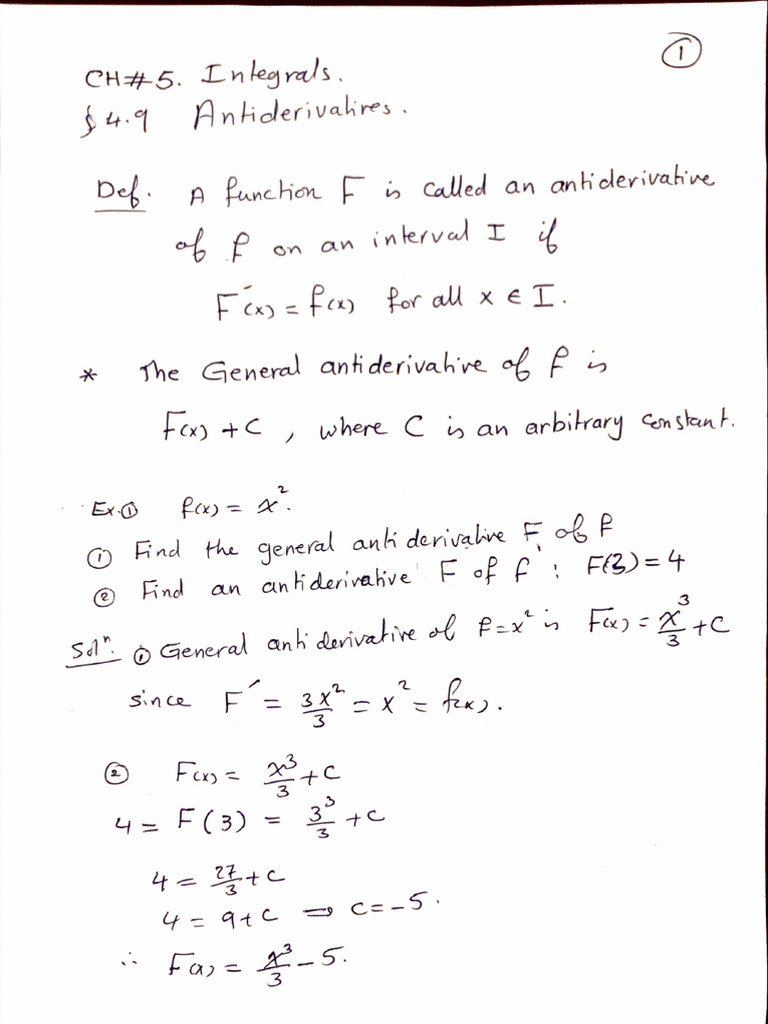 ①
CH#5. Integrals.
§ 4.9 Antiderivatives.
Def. A function F is called an antiderivative
of f on an interval I if
F′(x) = f(x) for all x ∈ I.
* The General antiderivative of f is
F(x) + C , where C is an arbitrary constant.
Ex.① f(x) = x².
① Find the general antiderivative F of f
② Find an antiderivative F of f : F(3) = 4
Solⁿ. ① General antiderivative of f = x² is F(x) = x³/3 + C
since F′ = 3x²/3 = x² = f(x).
② F(x) = x³/3 + C
4 = F(3) = 3³/3 + C
4 = 27/3 + C
4 = 9 + C ⇒ C = -5.
∴ F(x) = x³/3 - 5.